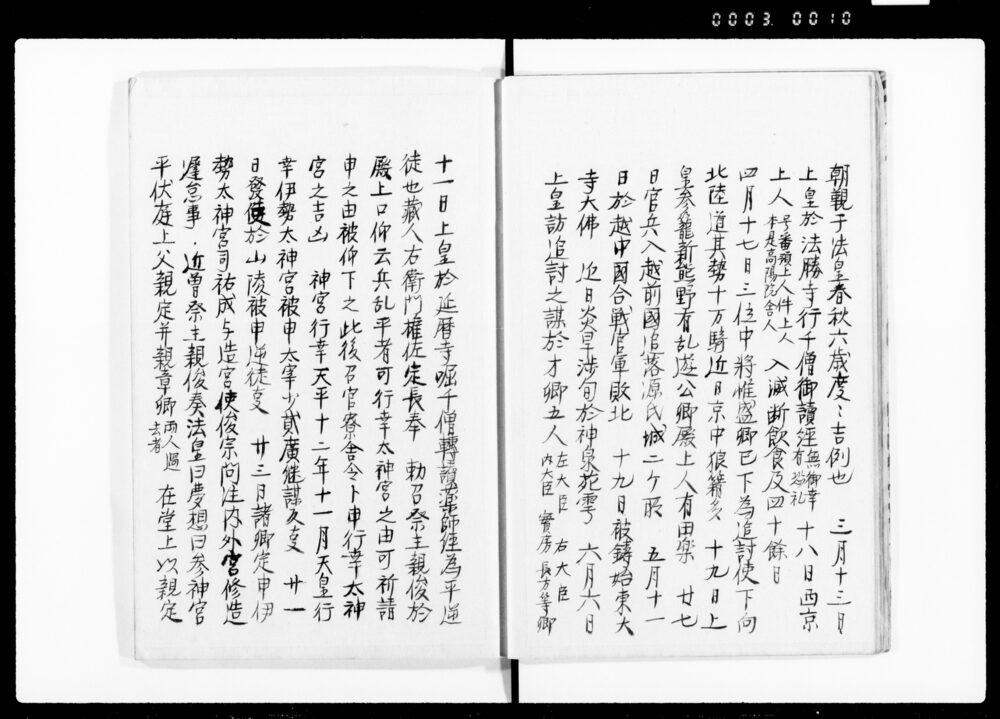 0003. 0010
朝覲于法皇春秋六歳度〻吉例也　三月十三日
上皇於法勝寺行千僧御讀經無御幸有巡礼　十八日西京
上人号番頭上人件上人本是高陽院舎人　入滅断飲食及四十餘日
四月十七日三位中將惟盛卿已下為追討使下向
北陸道其勢十万騎近日京中狼籍多　十九日上
皇参籠新熊野有乱遊公卿殿上人有田楽　廿七
日官兵入越前國追落源氏城二ケ所　五月十一
日於越中國合戦官軍敗北　十九日被鋳始東大
寺大佛　近日炎旱渉旬於神泉苑雩　六月六日
上皇訪追討之謀於才卿五人左大臣　右大臣内大臣　實房　長方等卿
十一日上皇於延暦寺啒千僧轉讀薬師経為平逆
徒也藏人右衛門権佐定長奉　勅召祭主親俊於
殿上口仰云兵乱平者可行幸太神宮之由可祈請
申之由被仰下之此後召官寮舎令卜申行幸太神
宮之吉凶　神宮行幸天平十二年十一月天皇行
幸伊勢太神宮被申太宰少貳廣継謀久叓　廿一
日發使於山陵被申逆徒叓　廿三日諸卿定申伊
勢太神宮司祐成与造宮使俊宗問注内外宮修造
遅怠事．近曽祭主親俊奏法皇曰慶想曰参神宮
平伏庭上父親定并親章卿兩人過去者　在堂上以親定